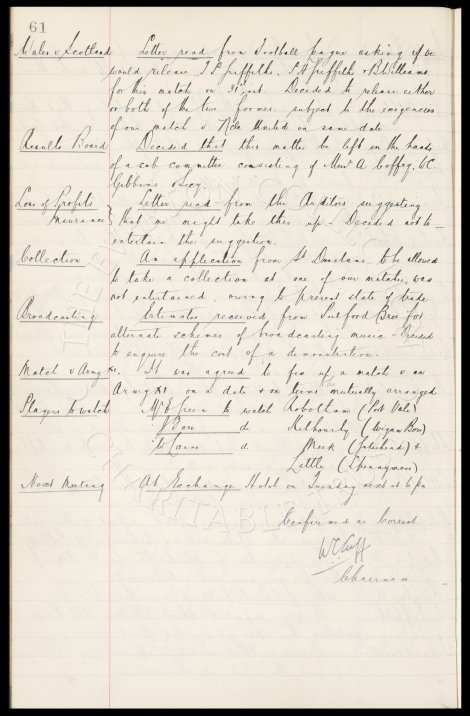 61
Wales v Scotland Letter read from Football League asking if we
would release T P Griffiths, P H Griffiths & B Williams
for this match on 31st inst. Decided to release either
or both of the two former subject to the exigencies
of our match v N/cle United on same date
Results Board Decided that this matter be left in the hands
of a sub committee consisting of Messrs A Coffey, W.C.
Gibbins & Secy.
Loss of Profits Letter read from the Auditors suggesting
Insurance } that we might take this up. Decided not to
entertain the suggestion.
Collection An application from St Dunstans to be allowed
to take a collection at one of our matches, was
not entertained, owing to present state of trade.
Broadcasting Estimates received from Bros for
alternate schemes of broadcasting music - Decided
to enquire the cost of a demonstration.
Match v Army XI. It was agreed to fix up a match v an
Army XI on a date & on terms mutually arranged
Players to watch Mr E Green to watch Robotham (Port Vale)
do (Wigan Boro)
do Meek (Gateshead) &
Little (Spennymoor)
Next Meeting At Exchange Hotel on Tuesday next at 6 pm
Confirmed as Correct.
W C Cuff
Chairman
CHARITABLE